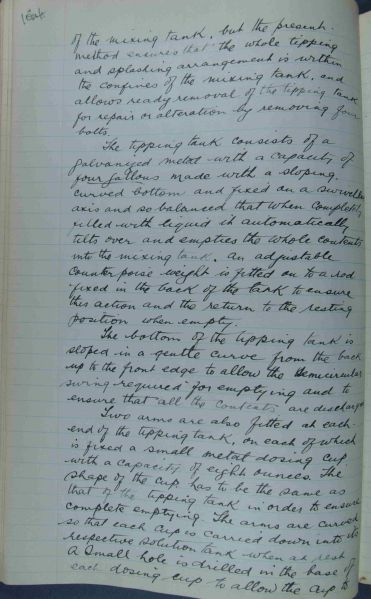 of the mixing tank, but the present
method ensures that the whole tipping
and splashing arrangement is within
the confines of the mixing tank, and
allows ready removal of the tipping tank
for repair or alteration by removing four
bolts.
The tipping tank consists of a
galvanized metal with a capacity of
four gallons made with a sloping
curved bottom and fixed on a
axis and so balanced that when completely
filled with liquid it automatically
tilts over and empties the whole contents
into the mixing tank. An adjustable
counter poise weight is fitted on to a rod
fixed in the back of the tank to ensure
this action and the return to the resting
position when empty.
The bottom of the tipping tank is
sloped in a gentle curve from the back
up to the front edge to allow the semicircular
swing required for emptying and to
ensure that all the contents are discharged
Two arms are also fitted at each
end of the tipping tank, on each of which
is fixed a small metal dosing cup
with a capacity of eight ounces. The
shape of the cup has to be the same as
that of the tipping tank in order to ensure
complete emptying. The arms are curved
so that each cup is carried down into its
respective solution tank when at rest
A small hole is drilled in the base of
each dosing cup to allow the cup to